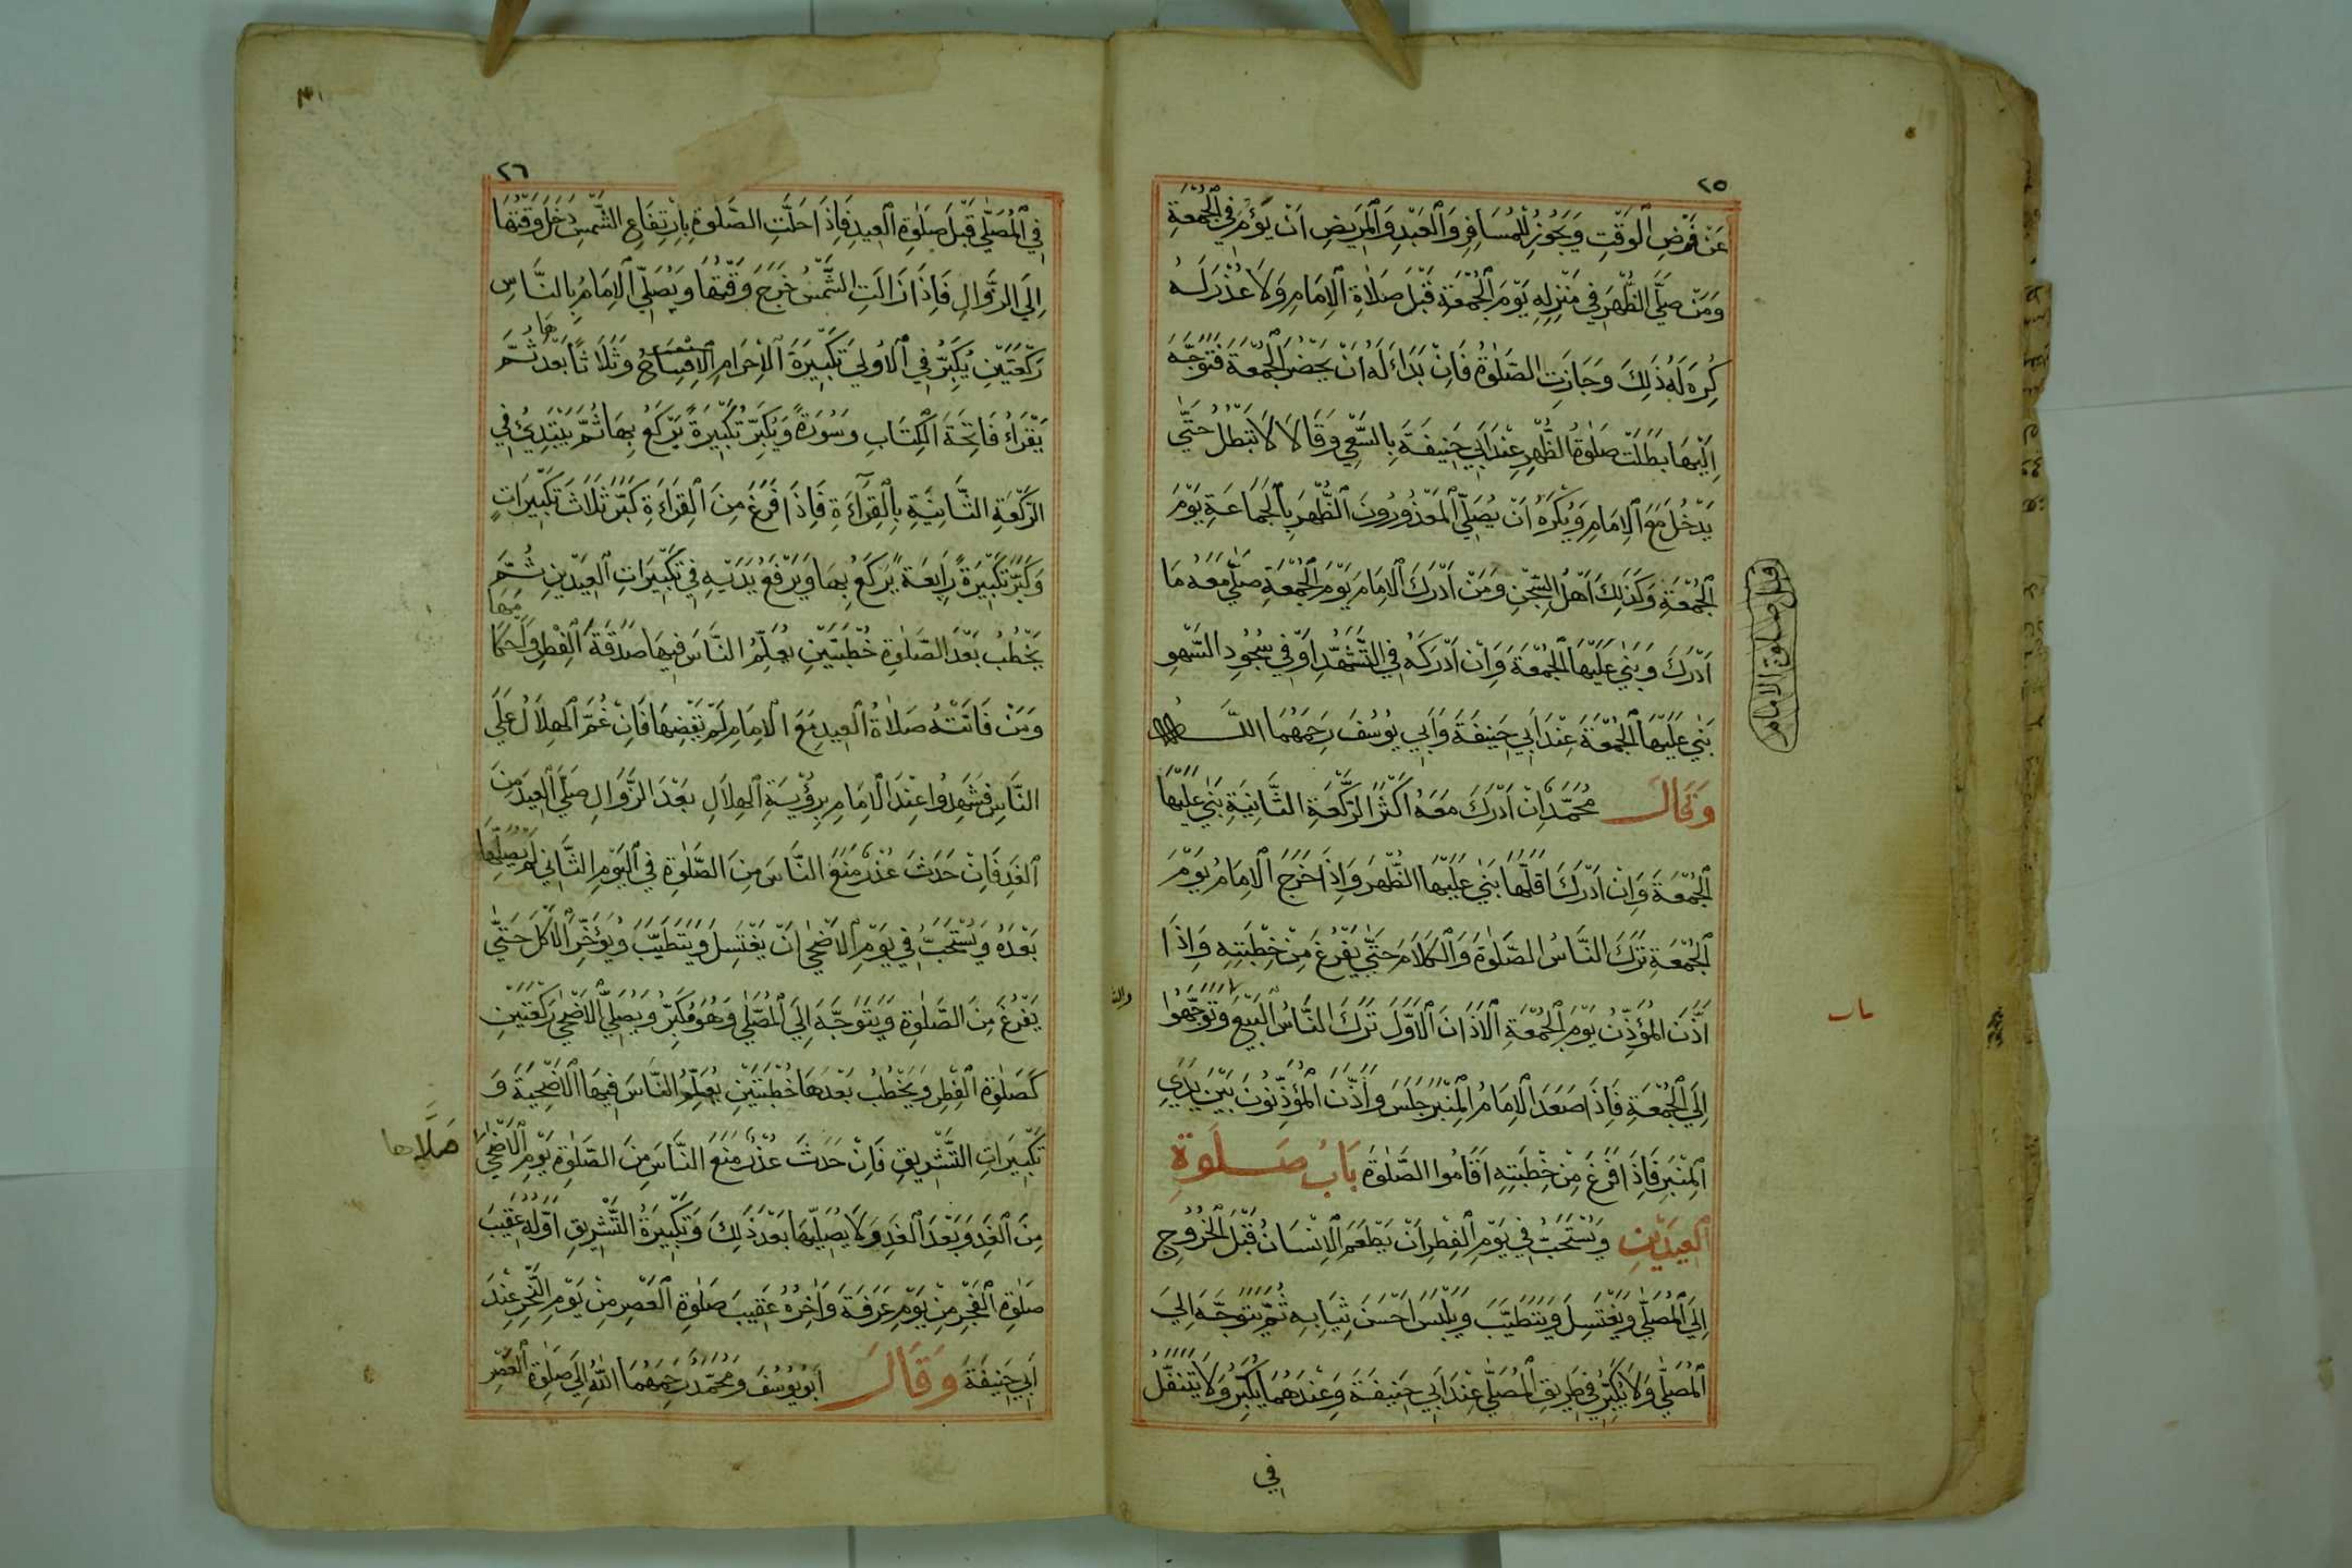 ٢٥
عَنْ فَرْضِ الْوَقْتِ وَيَجُوزُ لِلْمُسَافِرِ وَالْعَبْدِ وَالْمَرِيضِ اَنْ يَؤُمَّ فِي الْجُمْعَةِ
وَمَنْ صَلَّى الظُّهْرَ فِي مَنْزِلِهِ يَوْمَ الْجُمْعَةِ قَبْلَ صَلَاةِ الْاِمَامِ وَلَا عُذْرَ لَهُ
كُرِهَ لَهُ ذَلِكَ وَجَازَتِ الصَّلٰوةُ فَاِنْ بَدَاءَ لَهُ اَنْ يَحْضُرَ الْجُمْعَةَ فَتَوَجَّهَ
اِلَيْهَا بَطَلَتْ صَلٰوةُ الظُّهْرِ عِنْدَ اَبِي حَنِيفَةَ بِالسَّعْيِ وَقَالَا لَا تَبْطُلُ حَتَّى
يَدْخُلَ مَعَ الْاِمَامِ وَيُكْرَهُ اَنْ يُصَلِّيَ الْمَعْذُورُونَ الظُّهْرَ بِالْجَمَاعَةِ يَوْمَ
الْجُمْعَةِ وَكَذٰلِكَ اَهْلُ السِّجْنِ وَمَنْ اَدْرَكَ الْاِمَامَ يَوْمَ الْجُمْعَةِ صَلَّى مَعَهُ مَا
اَدْرَكَ وَبَنٰى عَلَيْهَا الْجُمْعَةَ وَاِنْ اَدْرَكَهُ فِي التَّشَهُّدِ اَوْ فِي سُجُودِ السَّهْوِ
بَنٰى عَلَيْهَا الْجُمْعَةَ عِنْدَ اَبِي حَنِيفَةَ وَاَبِي يُوسُفَ رَحِمَهُمَا اللّٰهُ
وَقَالَ مُحَمَّدٌ اِنْ اَدْرَكَ مَعَهُ اَكْثَرَ الرَّكْعَةِ الثَّانِيَةِ بَنٰى عَلَيْهَا
الْجُمْعَةَ وَاِنْ اَدْرَكَ اَقَلَّهَا بَنٰى عَلَيْهَا الظُّهْرَ وَاِذَا خَرَجَ الْاِمَامُ يَوْمَ
الْجُمْعَةِ تَرَكَ النَّاسُ الصَّلٰوةَ وَالْكَلَامَ حَتّٰى يَفْرُغَ مِنْ خُطْبَتِهِ وَاِذَا
اَذَّنَ الْمُؤَذِّنُ يَوْمَ الْجُمْعَةِ الْاَذَانَ الْاَوَّلَ تَرَكَ النَّاسُ الْبَيْعَ وَتَوَجَّهُوا
اِلَى الْجُمْعَةِ فَاِذَا صَعَدَ الْاِمَامُ الْمِنْبَرَ جَلَسَ وَاَذَّنَ الْمُؤَذِّنُونَ بَيْنَ يَدَيِ
الْمِنْبَرِ فَاِذَا فَرَغَ مِنْ خُطْبَتِهِ اَقَامُوا الصَّلٰوةَ بَابُ صَلٰوةِ
الْعِيدَيْنِ وَيُسْتَحَبُّ فِي يَوْمِ الْفِطْرِ اَنْ يَطْعَمَ الْاِنْسَانُ قَبْلَ الْخُرُوجِ
اِلَى الْمُصَلّٰى وَيَغْتَسِلَ وَيَتَطَيَّبَ وَيَلْبَسَ اَحْسَنَ ثِيَابِهِ ثُمَّ يَتَوَجَّهَ اِلَى
الْمُصَلّٰى وَلَا يُكَبِّرُ فِي طَرِيقِ الْمُصَلّٰى عِنْدَ اَبِي حَنِيفَةَ وَعِنْدَهُمَا يُكَبِّرُ وَلَا يَتَنَفَّلُ
فِي
قبل صلوة الامام
باب
٢٦
فِي الْمُصَلّٰى قَبْلَ صَلٰوةِ الْعِيدِ فَاِذَا حَلَّتِ الصَّلٰوةُ بِاِرْتِفَاعِ الشَّمْسِ دَخَلَ وَقْتُهَا
اِلَى الزَّوَالِ فَاِذَا زَالَتِ الشَّمْسُ خَرَجَ وَقْتُهَا وَيُصَلِّي الْاِمَامُ بِالنَّاسِ
رَكْعَتَيْنِ يُكَبِّرُ فِي الْاُولٰى تَكْبِيرَةَ الْاِحْرَامِ الْاِفْتِتَاحُ وَثَلَاثًا بَعْدَهَا ثُمَّ
يَقْرَاءُ فَاتِحَةَ الْكِتَابِ وَسُورَةً وَيُكَبِّرُ تَكْبِيرَةً يَرْكَعُ بِهَا ثُمَّ يَبْتَدِئُ فِي
الرَّكْعَةِ الثَّانِيَةِ بِالْقِرَآءَةِ فَاِذَا فَرَغَ مِنَ الْقِرَاءَةِ كَبَّرَ ثَلَاثَ تَكْبِيرَاتٍ
وَكَبَّرَ تَكْبِيرَةً رَابِعَةً يَرْكَعُ بِهَا وَيَرْفَعُ يَدَيْهِ فِي تَكْبِيرَاتِ الْعِيدَيْنِ ثُمَّ
يَخْطُبُ بَعْدَ الصَّلٰوةِ خُطْبَتَيْنِ يُعَلِّمُ النَّاسَ فِيهَا صَدَقَةَ الْفِطْرِ وَاَحْكَامِهَا
وَمَنْ فَاتَتْهُ صَلَاةُ الْعِيدِ مَعَ الْاِمَامِ لَمْ يَقْضِهَا فَاِنْ غُمَّ الْهِلَالُ عَلَى
النَّاسِ فَشَهِدُوا عِنْدَ الْاِمَامِ بِرُؤْيَةِ الْهِلَالِ بَعْدَ الزَّوَالِ صَلَّى الْعِيدَ مِنَ
الْغَدِ فَاِنْ حَدَثَ عُذْرٌ مَنَعَ النَّاسَ مِنَ الصَّلٰوةِ فِي الْيَوْمِ الثَّانِي لَمْ يُصَلِّهَا
بَعْدَهُ وَيُسْتَحَبُّ فِي يَوْمِ الْاَضْحٰى اَنْ يَغْتَسِلَ وَيَتَطَيَّبَ وَيُؤَخِّرَ الْاَكْلَ حَتّٰى
يَفْرُغَ مِنَ الصَّلٰوةِ وَيَتَوَجَّهَ اِلَى الْمُصَلّٰى وَهُوَ مُكَبِّرُ وَيُصَلِّي الْاَضْحٰى رَكْعَتَيْنِ
كَصَلٰوةِ الْفِطْرِ وَيَخْطُبُ بَعْدَهَا خُطْبَتَيْنِ يُعَلِّمُ النَّاسَ فِيهَا الْاُضْحِيَةَ وَ
تَكْبِيرَاتِ التَّشْرِيقِ فَاِنْ حَدَثَ عُذْرٌ مَنَعَ النَّاسَ مِنَ الصَّلٰوةِ يَوْمَ الْاَضْحٰى
مِنَ الْغَدِ وَبَعْدَ الْغَدِ وَلَا يُصَلِّيهَا بَعْدَ ذٰلِكَ وَتَكْبِيرَةُ التَّشْرِيقِ اَوَّلُهُ عَقِيبَ
صَلٰوةِ الْفَجْرِ مِنْ يَوْمِ عَرَفَةَ وَاٰخِرُهُ عَقِيبَ صَلٰوةِ الْعَصْرِ مِنْ يَوْمِ النَّحْرِ عِنْدَ
اَبِي حَنِيفَةَ وَقَالَ اَبُو يُوسُفَ وَمُحَمَّدٌ رَحِمَهُمَا اللّٰهُ اِلَى صَلٰوةِ الْعَصْرِ
صَلَّاها